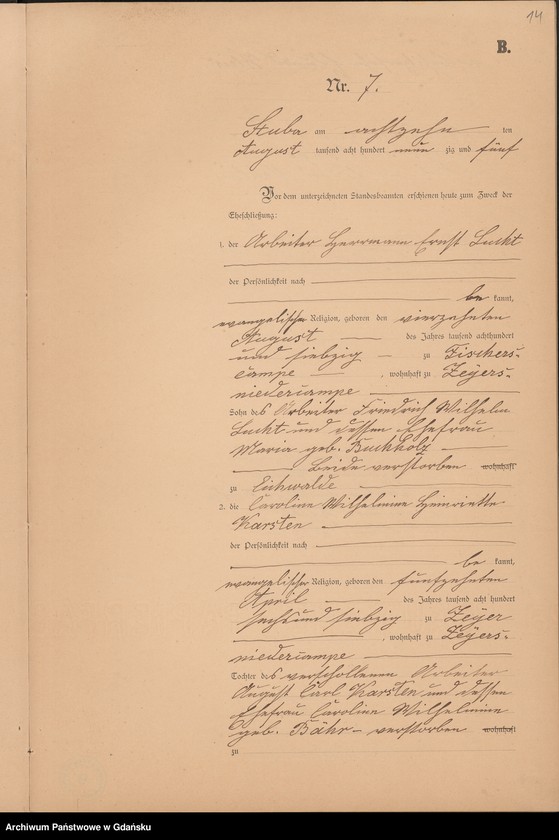 14
B.
Nr. 7.
Stuba am achtzehn ten
August tausend acht hundert neun zig und fünf
Vor dem unterzeichneten Standesbeamten erschienen heute zum Zweck der
Eheschließung:
1. der Arbeiter Herrmann Ernst Lucht
der Persönlichkeit nach
be kannt,
evangelischer Religion, geboren den vierzehnten
August des Jahres tausend achthundert
und siebzig zu Fischers-
campe, wohnhaft zu Zeyers-
niedercampe
Sohn des Arbeiter Friedrich Wilhelm
Lucht und dessen Ehefrau
Maria geb. Buchholz
Beide verstorben wohnhaft
zu Eichwalde
2. die Caroline Wilhelmine Heinriette
Karsten
der Persönlichkeit nach
be kannt,
evangelischer Religion, geboren den fünfzehnten
April des Jahres tausend acht hundert
sechsund siebzig zu Zeyer
, wohnhaft zu Zeyers-
niedercampe
Tochter des verschollenen Arbeiter
August Carl Karsten und dessen
Ehefrau Caroline Wilhelmine
geb. Bähr - verstorben wohnhaft
zu
Archiwum Państwowe w Gdańsku